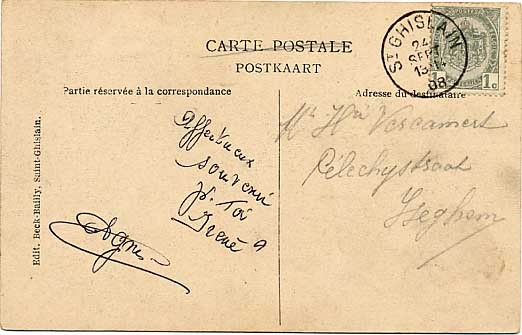 CARTE POSTALE
POSTKAART
ST GHISLAIN
24
SEPT
13-14
08
1c
Partie réservée à la correspondance
Adresse du destinataire
Edit. Beck-Bailly, Saint-Ghislain.
Affectueux
souvenir
p. Toi
René
Mr Hri Vescamert
Pélechystraat
Iseghem